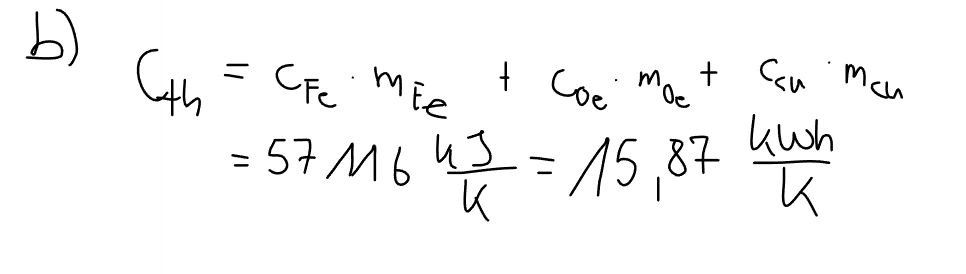 b) C_th = c_Fe · m_Fe + c_Oe · m_Oe + c_cu · m_cu
= 57 116 kJ/K = 15,87 kWh/K